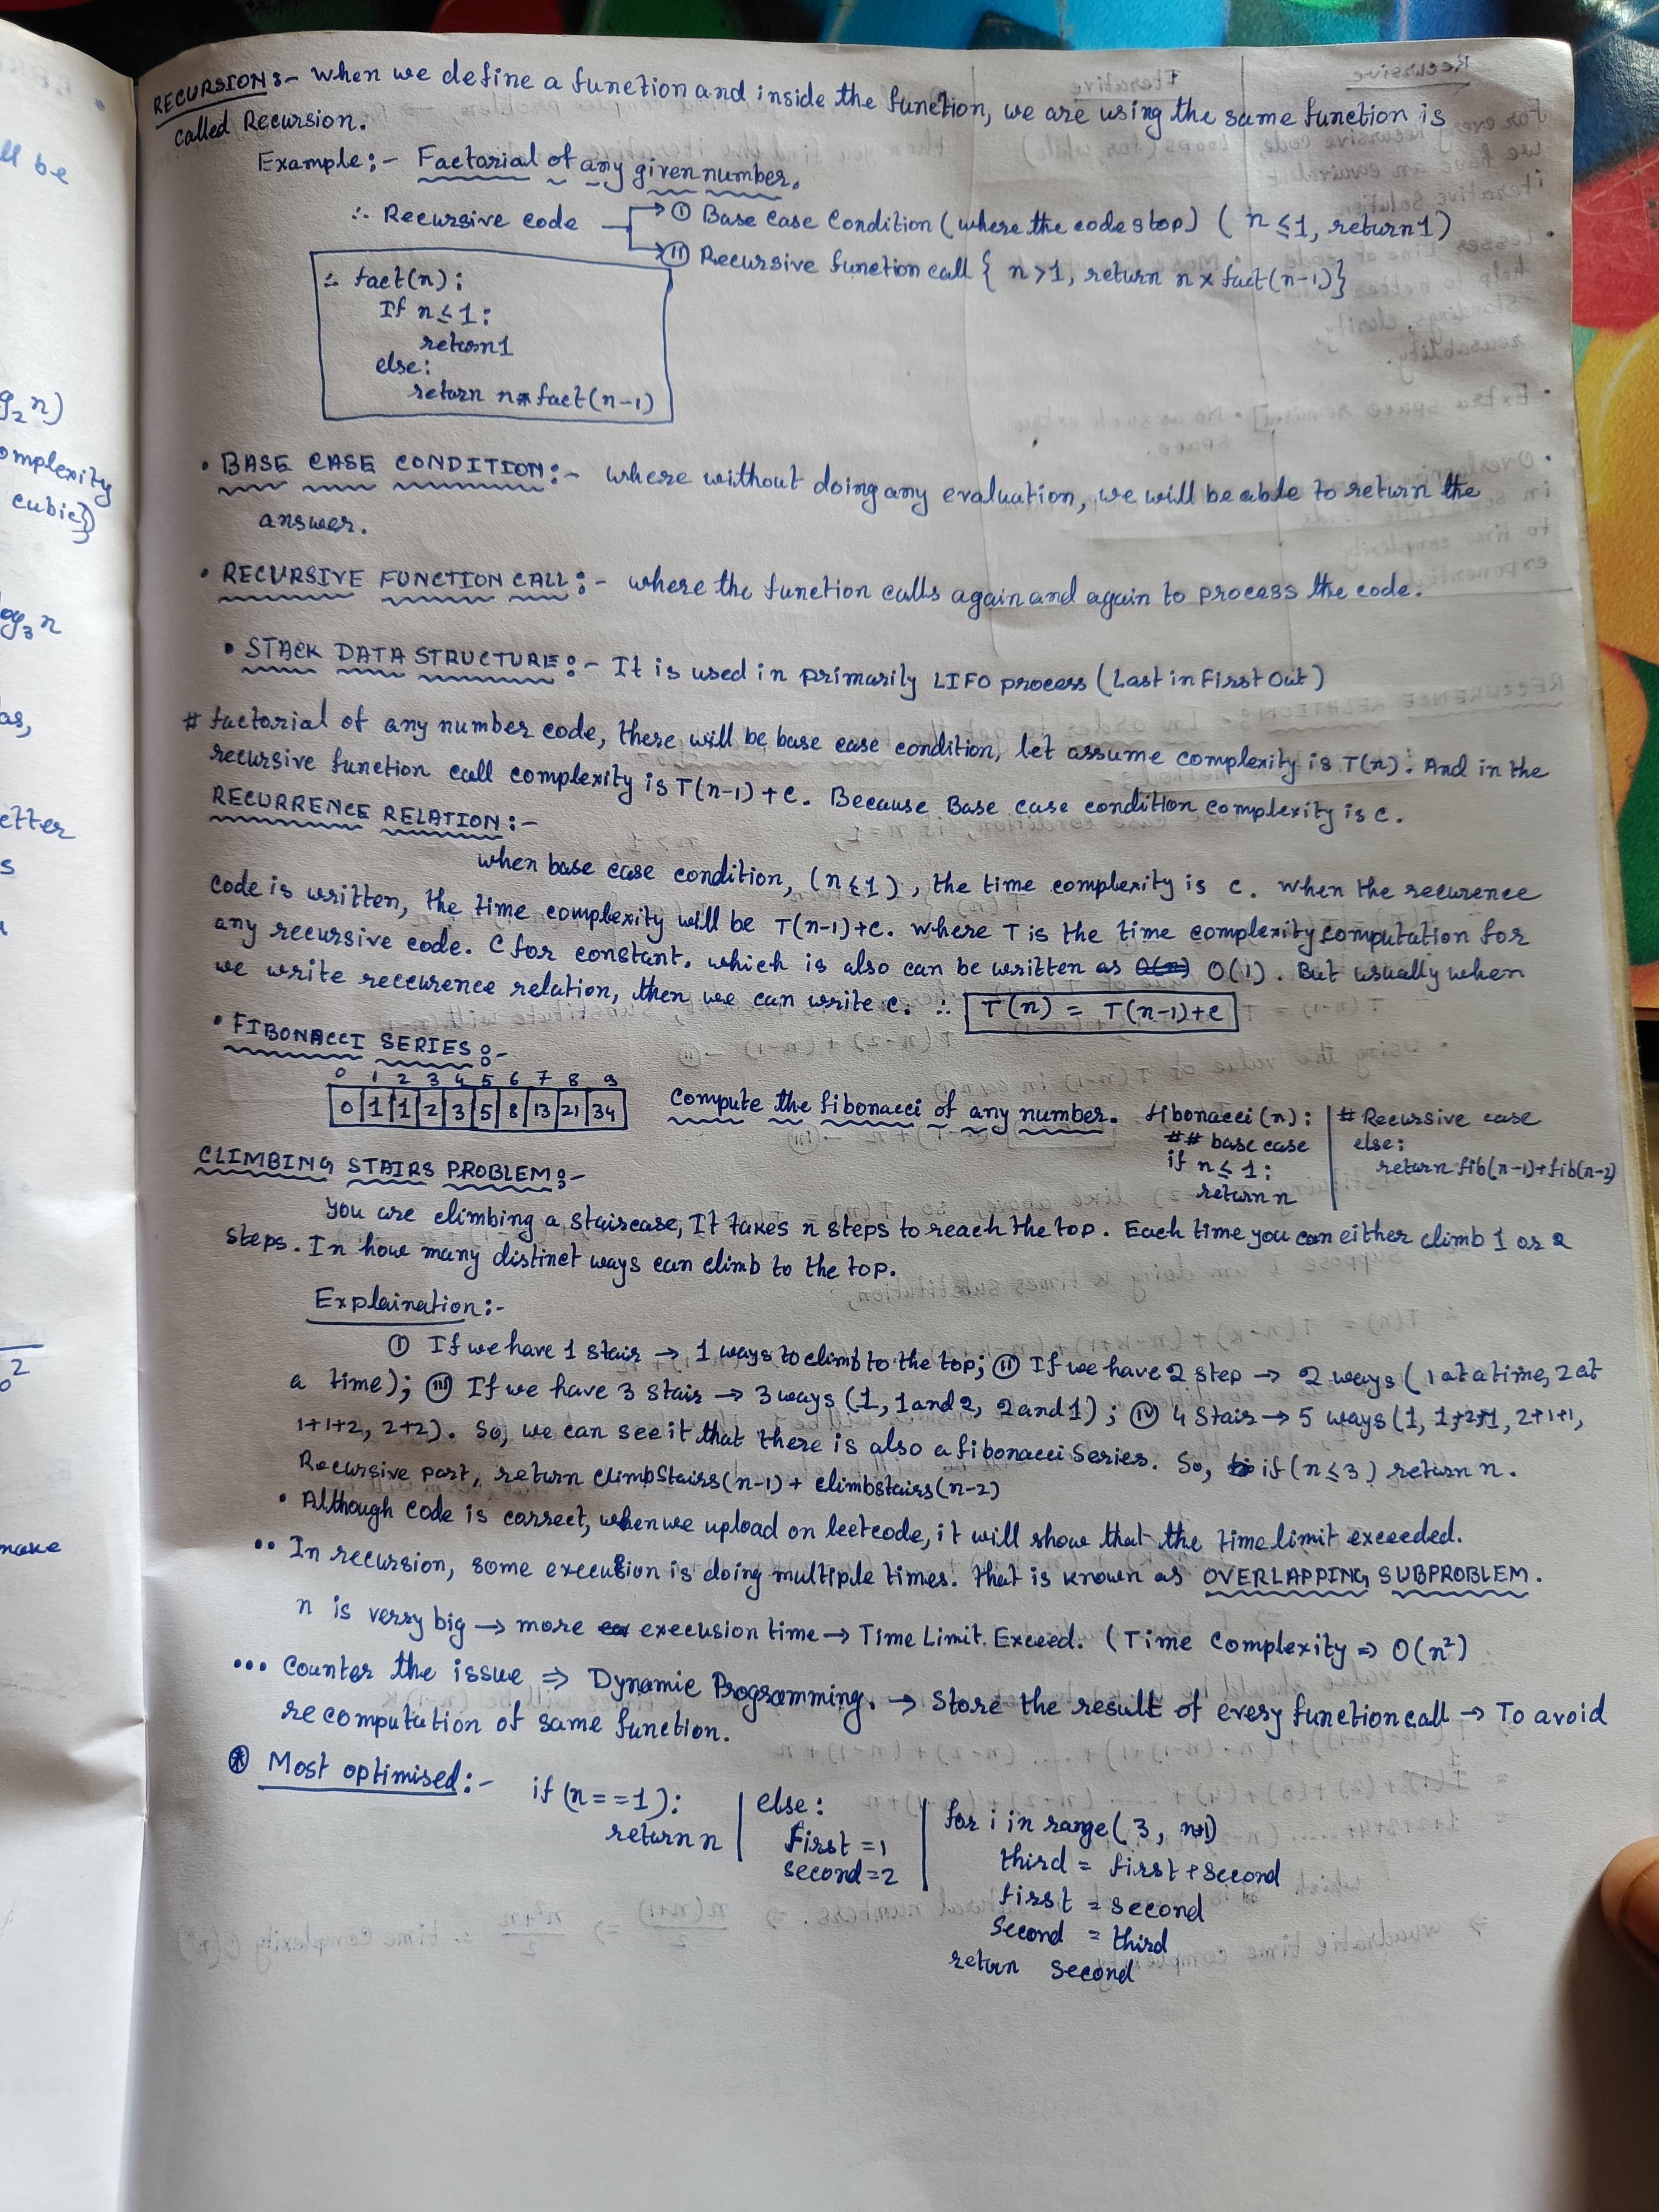 RECURSION:- When we define a function and inside the function, we are using the same function is
called Recursion.
Example:- Factorial of any given number.
∴ Recursive code → (I) Base Case Condition (where the code stop) ( n ≤ 1, return 1)
→ (II) Recursive function call { n > 1, return n x fact(n-1)}
∴ fact(n):
If n ≤ 1:
return 1
else:
return n * fact(n-1)
• BASE CASE CONDITION:- where without doing any evaluation, we will be able to return the
answer.
• RECURSIVE FUNCTION CALL:- where the function calls again and again to process the code.
• STACK DATA STRUCTURE:- It is used in primarily LIFO process (Last in First Out)
# factorial of any number code, there will be base case condition, let assume complexity is T(n). And in the
recursive function call complexity is T(n-1)+c. Because Base case condition complexity is c.
RECURRENCE RELATION:-
when base case condition, (n ≤ 1), the time complexity is c. When the recurence
code is written, the time complexity will be T(n-1)+c. where T is the time complexity computation for
any recursive code. C for constant, which is also can be written as O(n) O(1). But usually when
we write reccurence relation, then we can write c. ∴ T(n) = T(n-1)+c
• FIBONACCI SERIES:-
0 1 2 3 4 5 6 7 8 9
0 1 1 2 3 5 8 13 21 34
Compute the fibonacci of any number.
fibonacci(n):
## base case
if n ≤ 1:
return n
# Recursive case
else:
return fib(n-1)+fib(n-2)
CLIMBING STAIRS PROBLEM:-
You are climbing a staircase, It takes n steps to reach the top. Each time you can either climb 1 or 2
steps. In how many distinct ways can climb to the top.
Explaination:-
(I) If we have 1 stair → 1 ways to climb to the top; (II) If we have 2 step → 2 ways (1 at a time, 2 at
a time); (III) If we have 3 stair → 3 ways (1, 1 and 2, 2 and 1); (IV) 4 Stair → 5 ways (1, 1+2+1, 2+1+1,
1+1+2, 2+2). So, we can see it that there is also a fibonacci Series. So, if (n ≤ 3) return n.
Recursive part, return climbStairs(n-1) + climbstairs(n-2)
• Although code is correct, when we upload on leetcode, it will show that the time limit exceeded.
•• In recursion, some execusion is doing multiple times. that is known as OVERLAPPING SUBPROBLEM.
n is verry big → more execusion time → Time Limit Exceed. (Time Complexity ⇒ O(n²)
••• Counter the issue ⇒ Dynamic Programming. → Store the result of every function call → To avoid
recomputation of same function.
⊛ Most optimised:-
if (n==1):
return n
else:
first = 1
second = 2
for i in range(3, n+1)
third = first + second
first = second
second = third
return second
g₂n)
omplexity
cubic})
log₃n
etter
ll be